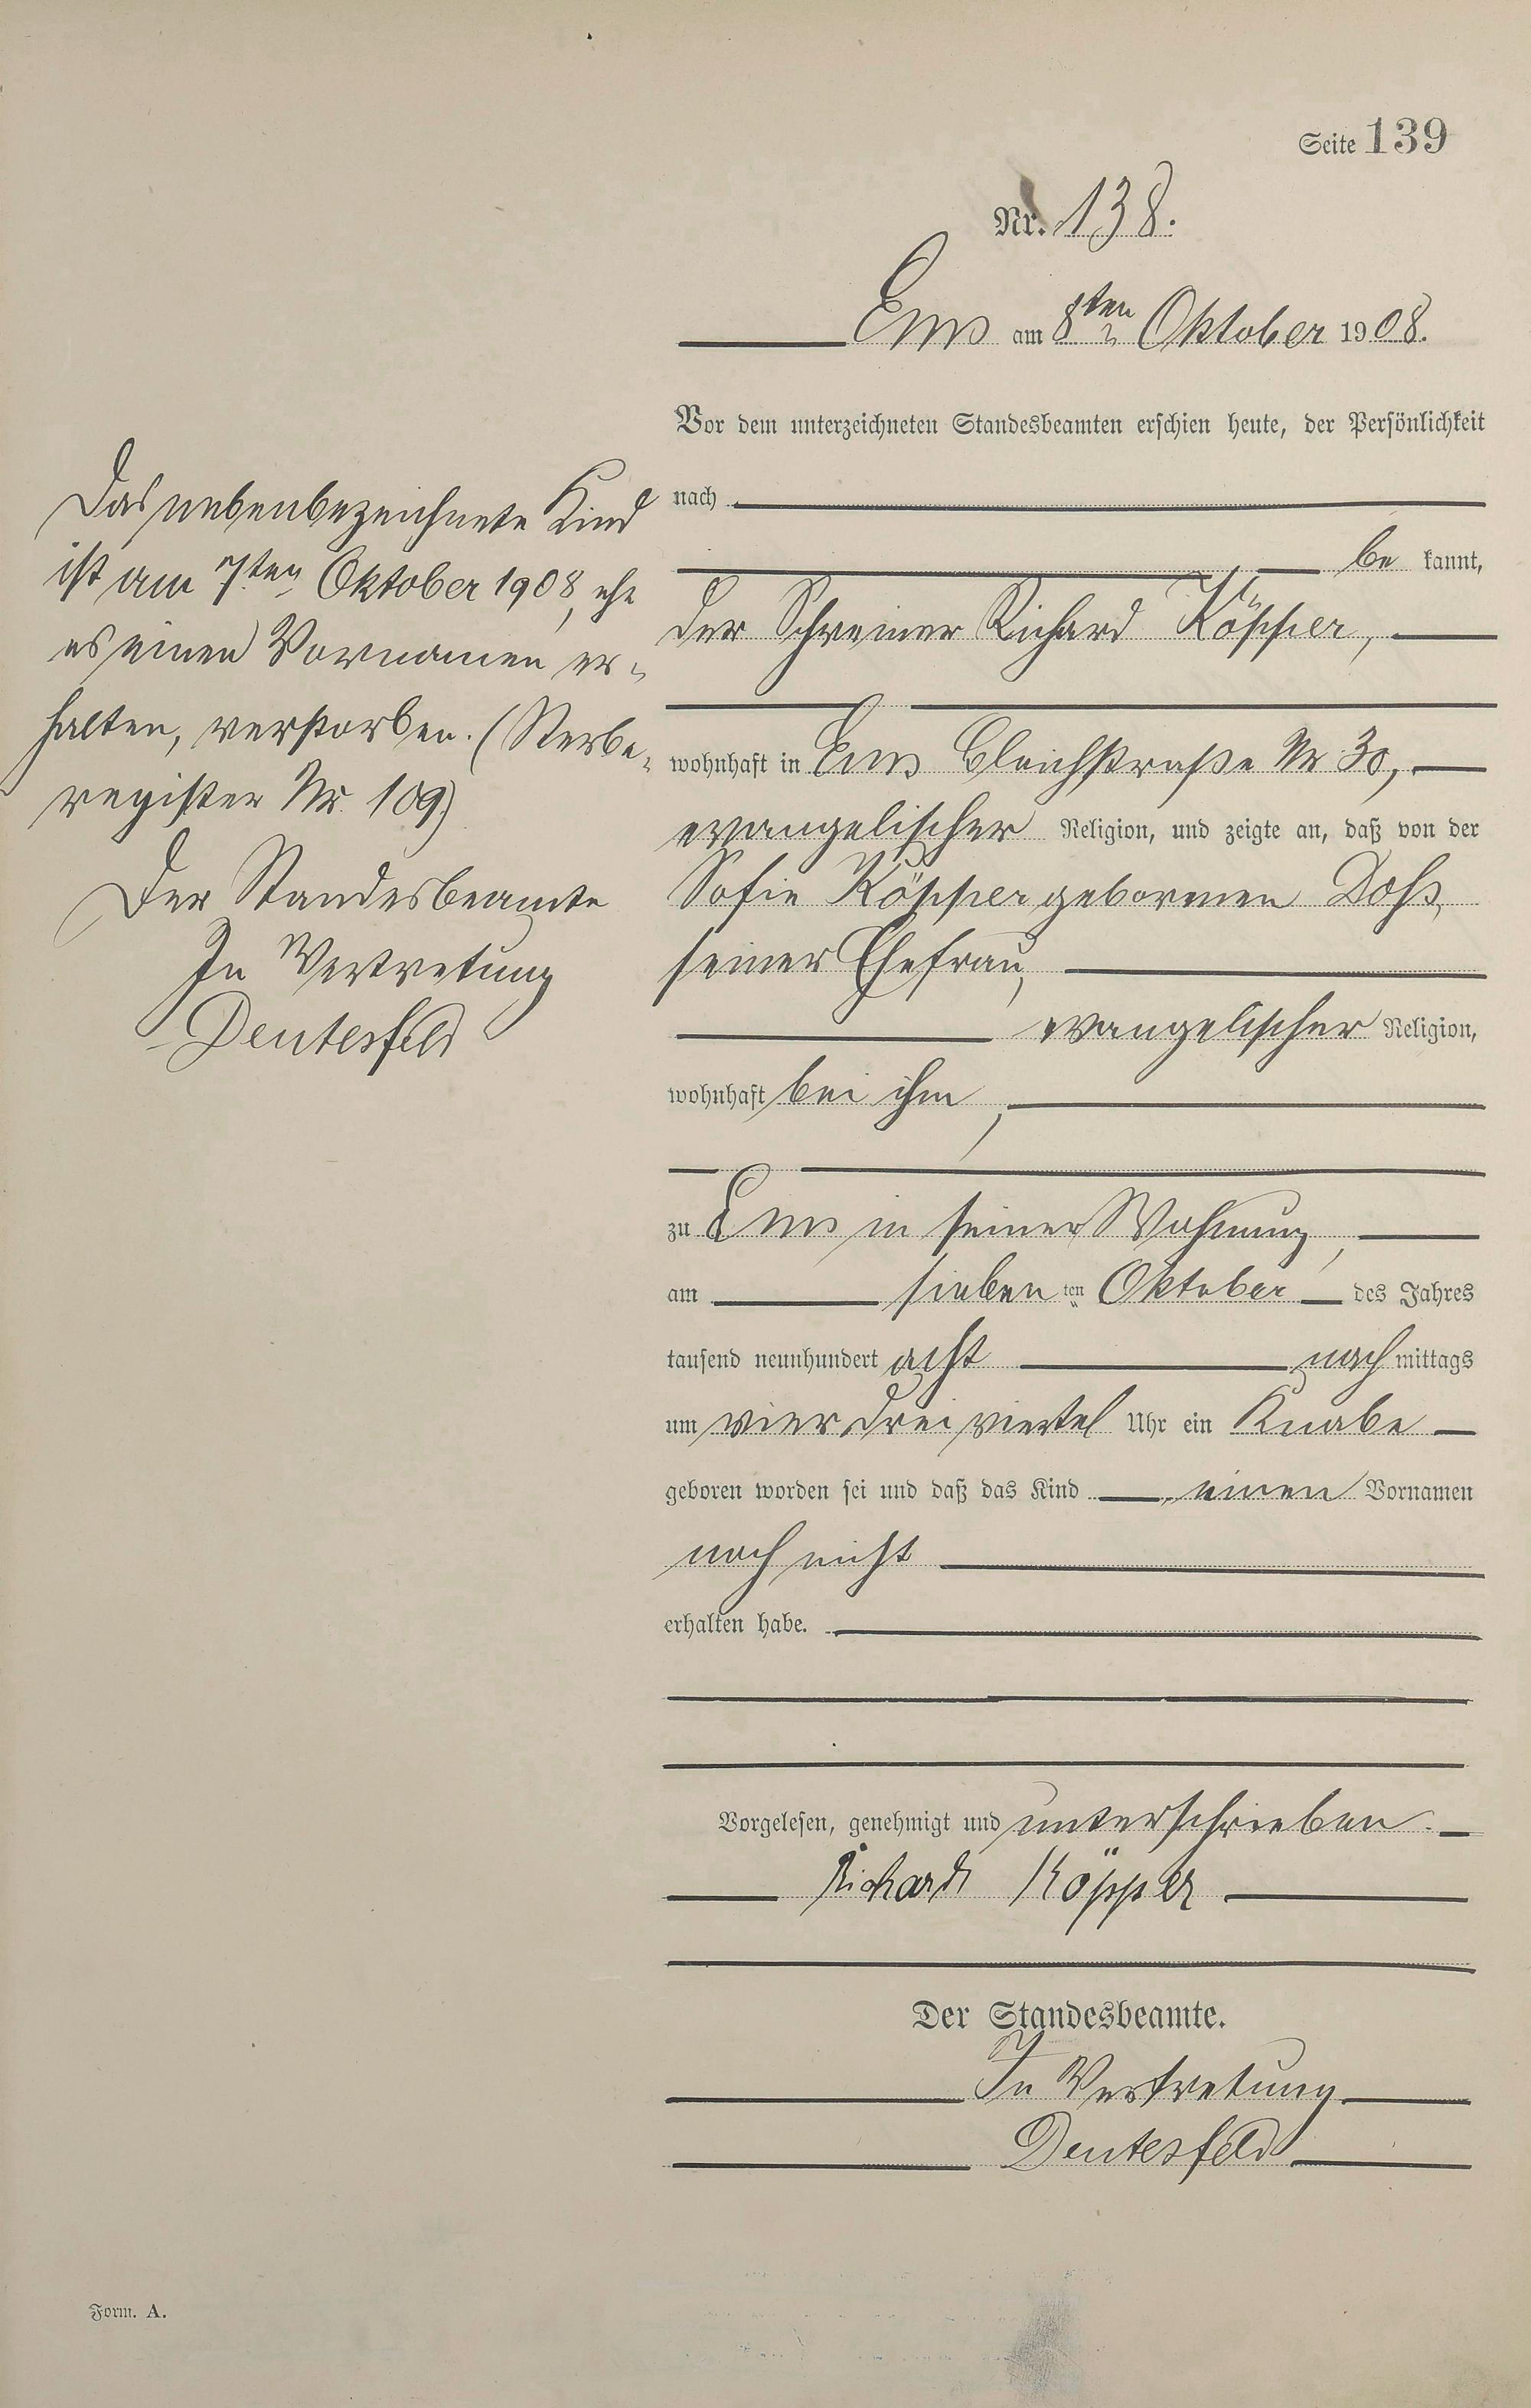 Seite 139
Nr. 138.
Ems am 8ten Oktober 1908.
Vor dem unterzeichneten Standesbeamten erschien heute, der Persönlichkeit
nach
be kannt,
der Schreiner Richard Köpper,
wohnhaft in Ems Bleichstraße Nr 30,
evangelischer Religion, und zeigte an, daß von der
Sofie Köpper geborenen Doß,
seiner Ehefrau,
evangelischer Religion,
wohnhaft bei ihm,
zu Ems in seiner Wohnung,
am sieben ten Oktober des Jahres
tausend neunhundert acht nach mittags
um vier drei viertel Uhr ein Knabe
geboren worden sei und daß das Kind einen Vornamen
noch nicht
erhalten habe.
Vorgelesen, genehmigt und unterschrieben.
Richard Köpper
Der Standesbeamte.
In Vertretung
Deutesfeld
Das nebenbezeichnete Kind
ist am 7ten Oktober 1908, ehe
es einen Vornamen er-
halten, verstorben. (Sterbe-
register Nr. 109)
Der Standesbeamte
In Vertretung
Deutesfeld
Form. A.